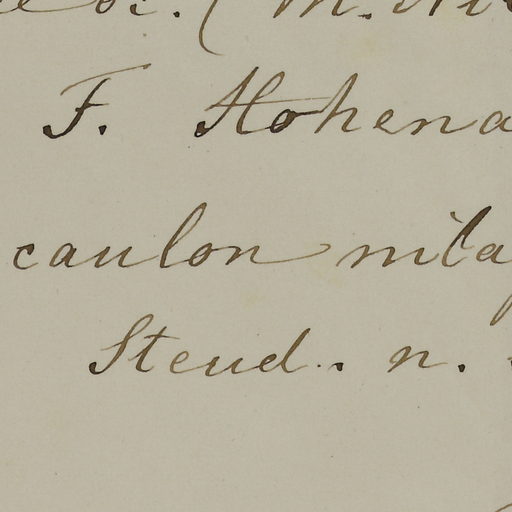 F. Hohena
caulon nila
Steud. n.